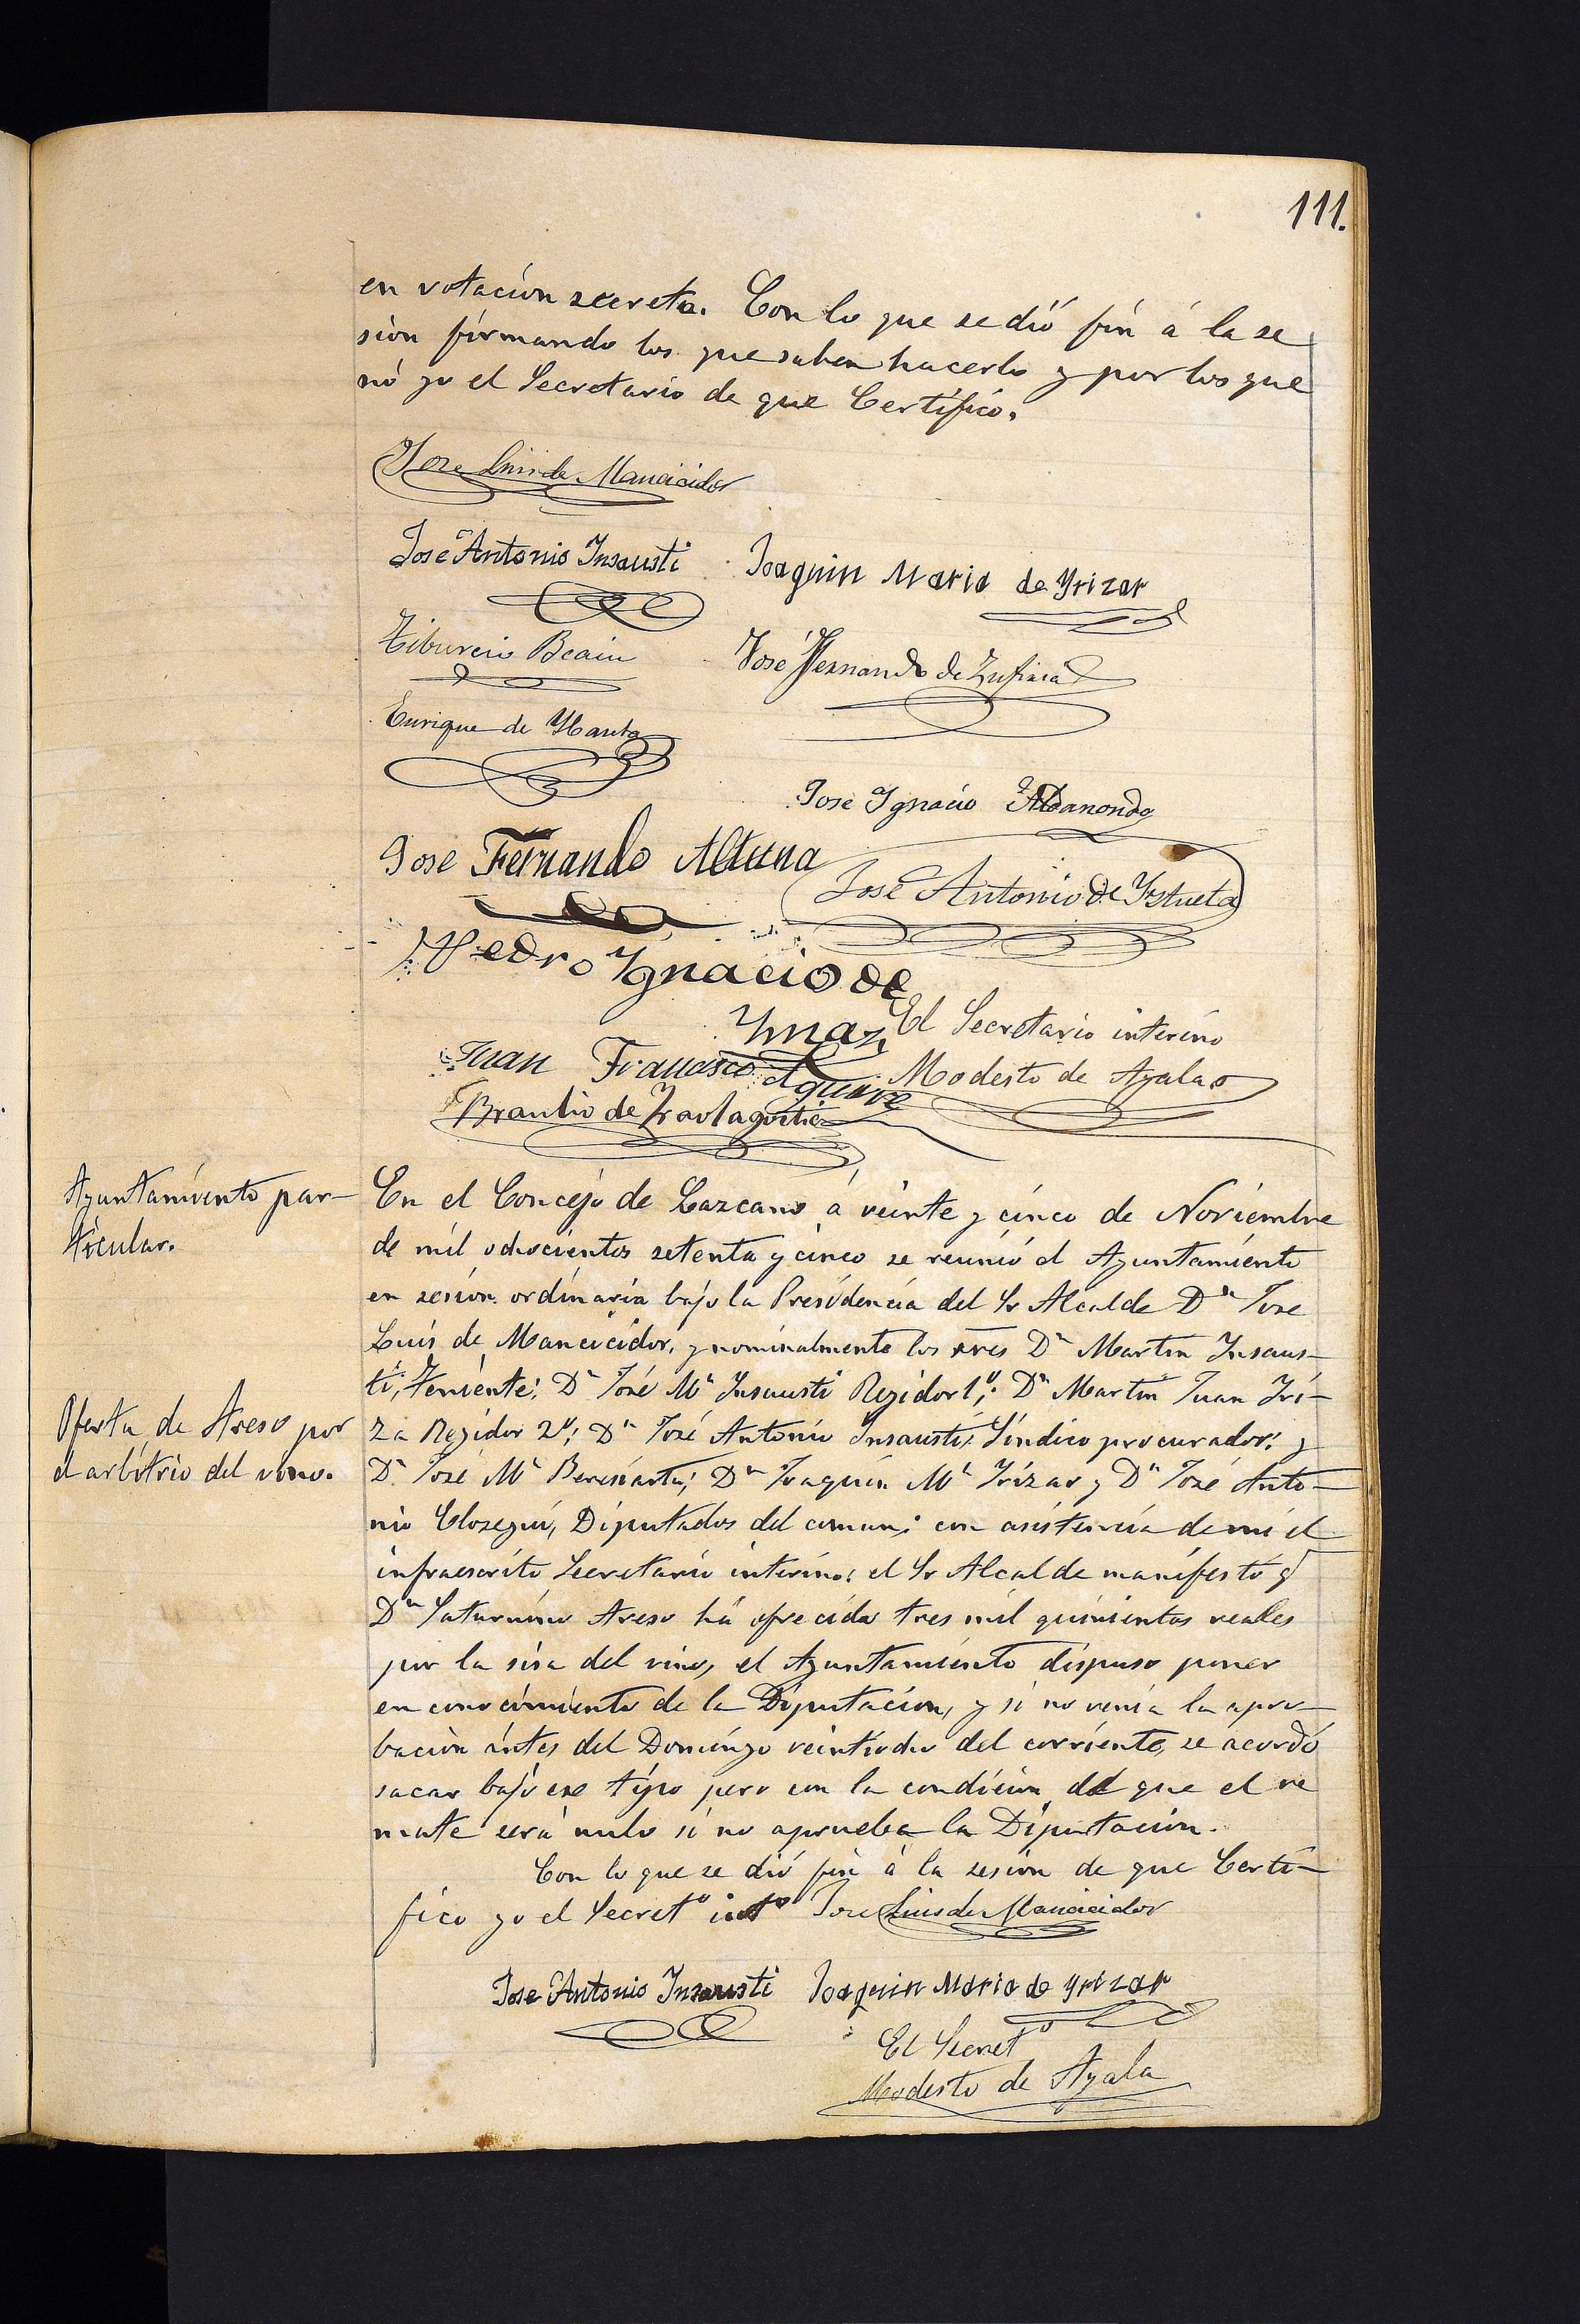 111.
en votación secreta. Con lo que se dió fin á la se
sión firmando los que saben hacerlo y por los que
nó yo el Secretario de que Certifico.
Jose Luis de Mancicidor
José Antonio Insausti
Joaquin Maria de Yrizar
Tiburcio Beain
José Fernando de Zufiria
Enrique de
Jose Ygnacio Aldanondo
Jose Fernando Altuna
José Antonio de Yztueta
Pedro Ygnacio de
Ymaz
El Secretario interino
Juan Francisco Aguirre
Modesto de Ayala
Braulio de
Ayuntamiento par-
ticular.
En el Concejo de Lazcano á veinte y cinco de Noviembre
de mil ochocientos setenta y cinco se reunió el Ayuntamiento
en sesion ordinaria bajo la Presidencia del Sr Alcalde Dn Jose
Luis de Mancicidor, y nominalmente los sres Dn Martin Insaus-
ti, Teniente; Dn José Ma Insausti Regidor 1o; Dn Martin Juan Iri-
za Regidor 2o; Dn José Antonio Insausti, Síndico procurador; y
Oferta de Areso por
el arbitrio del vino.
Dn José Ma Beresiartu; Dn Joaquin Ma Irizar y Dn José Anto-
nio Olozegui, Diputados del comun; con asistencia de mi el
infraescrito Secretario interino: el Sr Alcalde manifestó q
Dn Saturnino Areso há ofrecido tres mil quinientos reales
por la sisa del vino, el Ayuntamiento dispuso poner
en conocimiento de la Diputacion, y si no venia la apro-
bacion ántes del Domingo veintiocho del corriente, se acordó
sacar bajo ese tipo pero con la condicion de que el re
mate será nulo si no aprueba la Diputacion.
Con lo que se dió fin á la sesion de que Certi-
fico yo el Secreto into Jose Luis de Mancicidor
Jose Antonio Insausti
Joaquin Maria de Yrizar
El Secreto
Modesto de Ayala